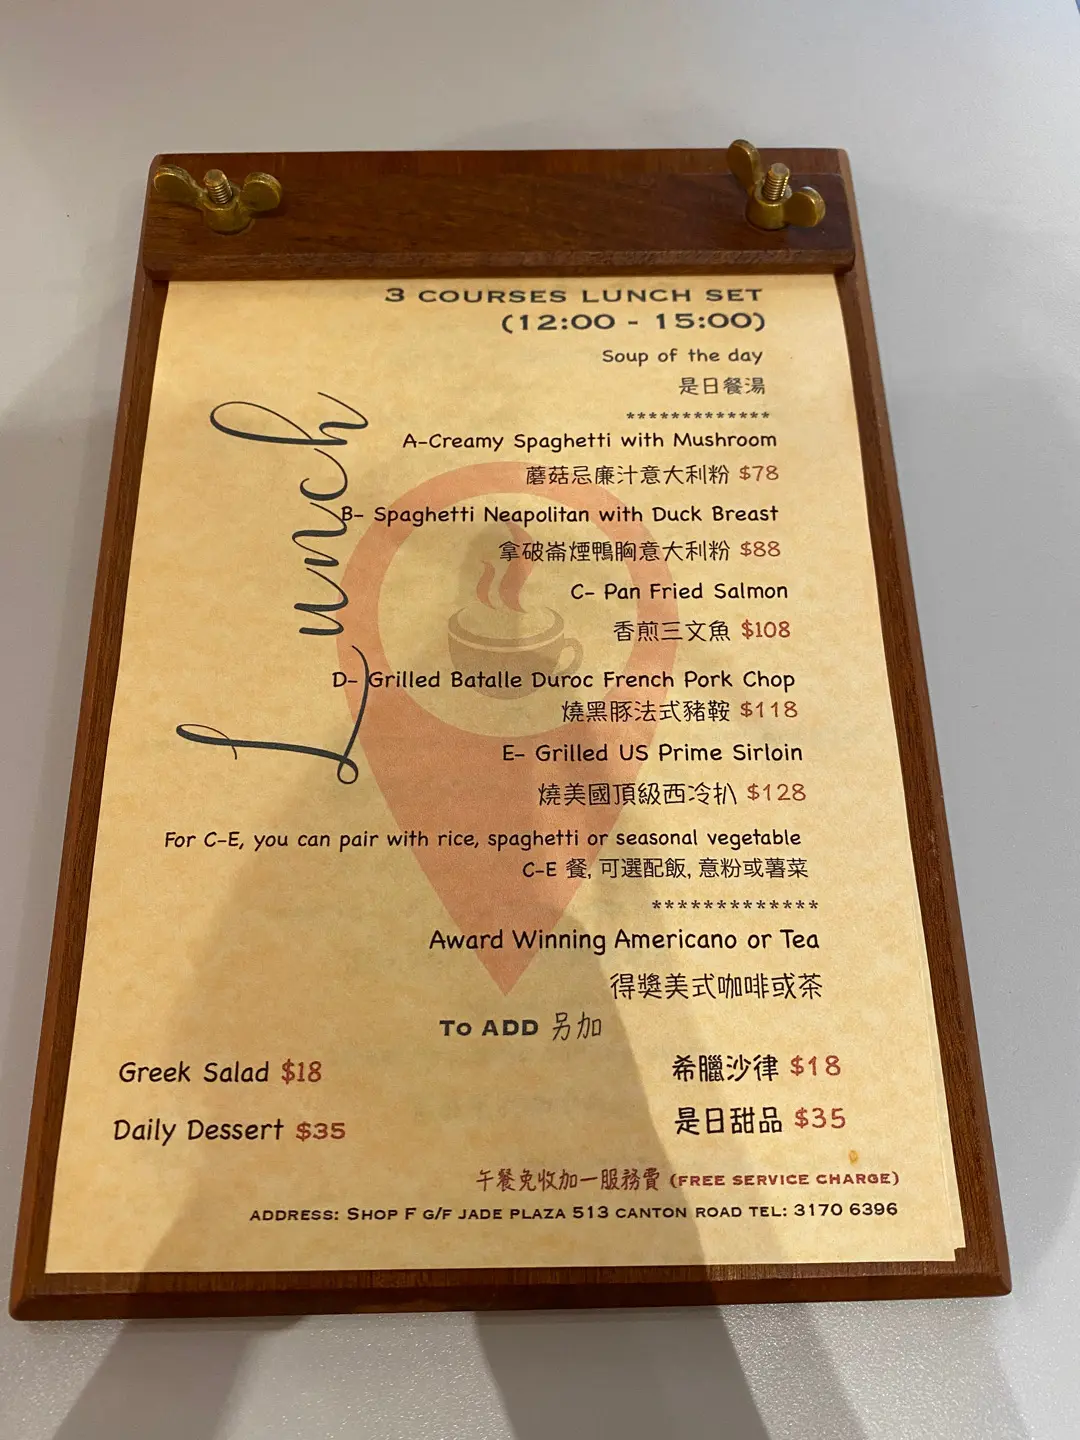 Lunch
3 COURSES LUNCH SET
(12:00 - 15:00)
Soup of the day
是日餐湯
*************
A-Creamy Spaghetti with Mushroom
蘑菇忌廉汁意大利粉 $78
B- Spaghetti Neapolitan with Duck Breast
拿破崙煙鴨胸意大利粉 $88
C- Pan Fried Salmon
香煎三文魚 $108
D- Grilled Batalle Duroc French Pork Chop
燒黑豚法式豬鞍 $118
E- Grilled US Prime Sirloin
燒美國頂級西冷扒 $128
For C-E, you can pair with rice, spaghetti or seasonal vegetable
C-E 餐, 可選配飯, 意粉或薯菜
*************
Award Winning Americano or Tea
得獎美式咖啡或茶
To ADD 另加
Greek Salad $18 希臘沙律 $18
Daily Dessert $35 是日甜品 $35
午餐免收加一服務費 (FREE SERVICE CHARGE)
ADDRESS: SHOP F G/F JADE PLAZA 513 CANTON ROAD TEL: 3170 6396